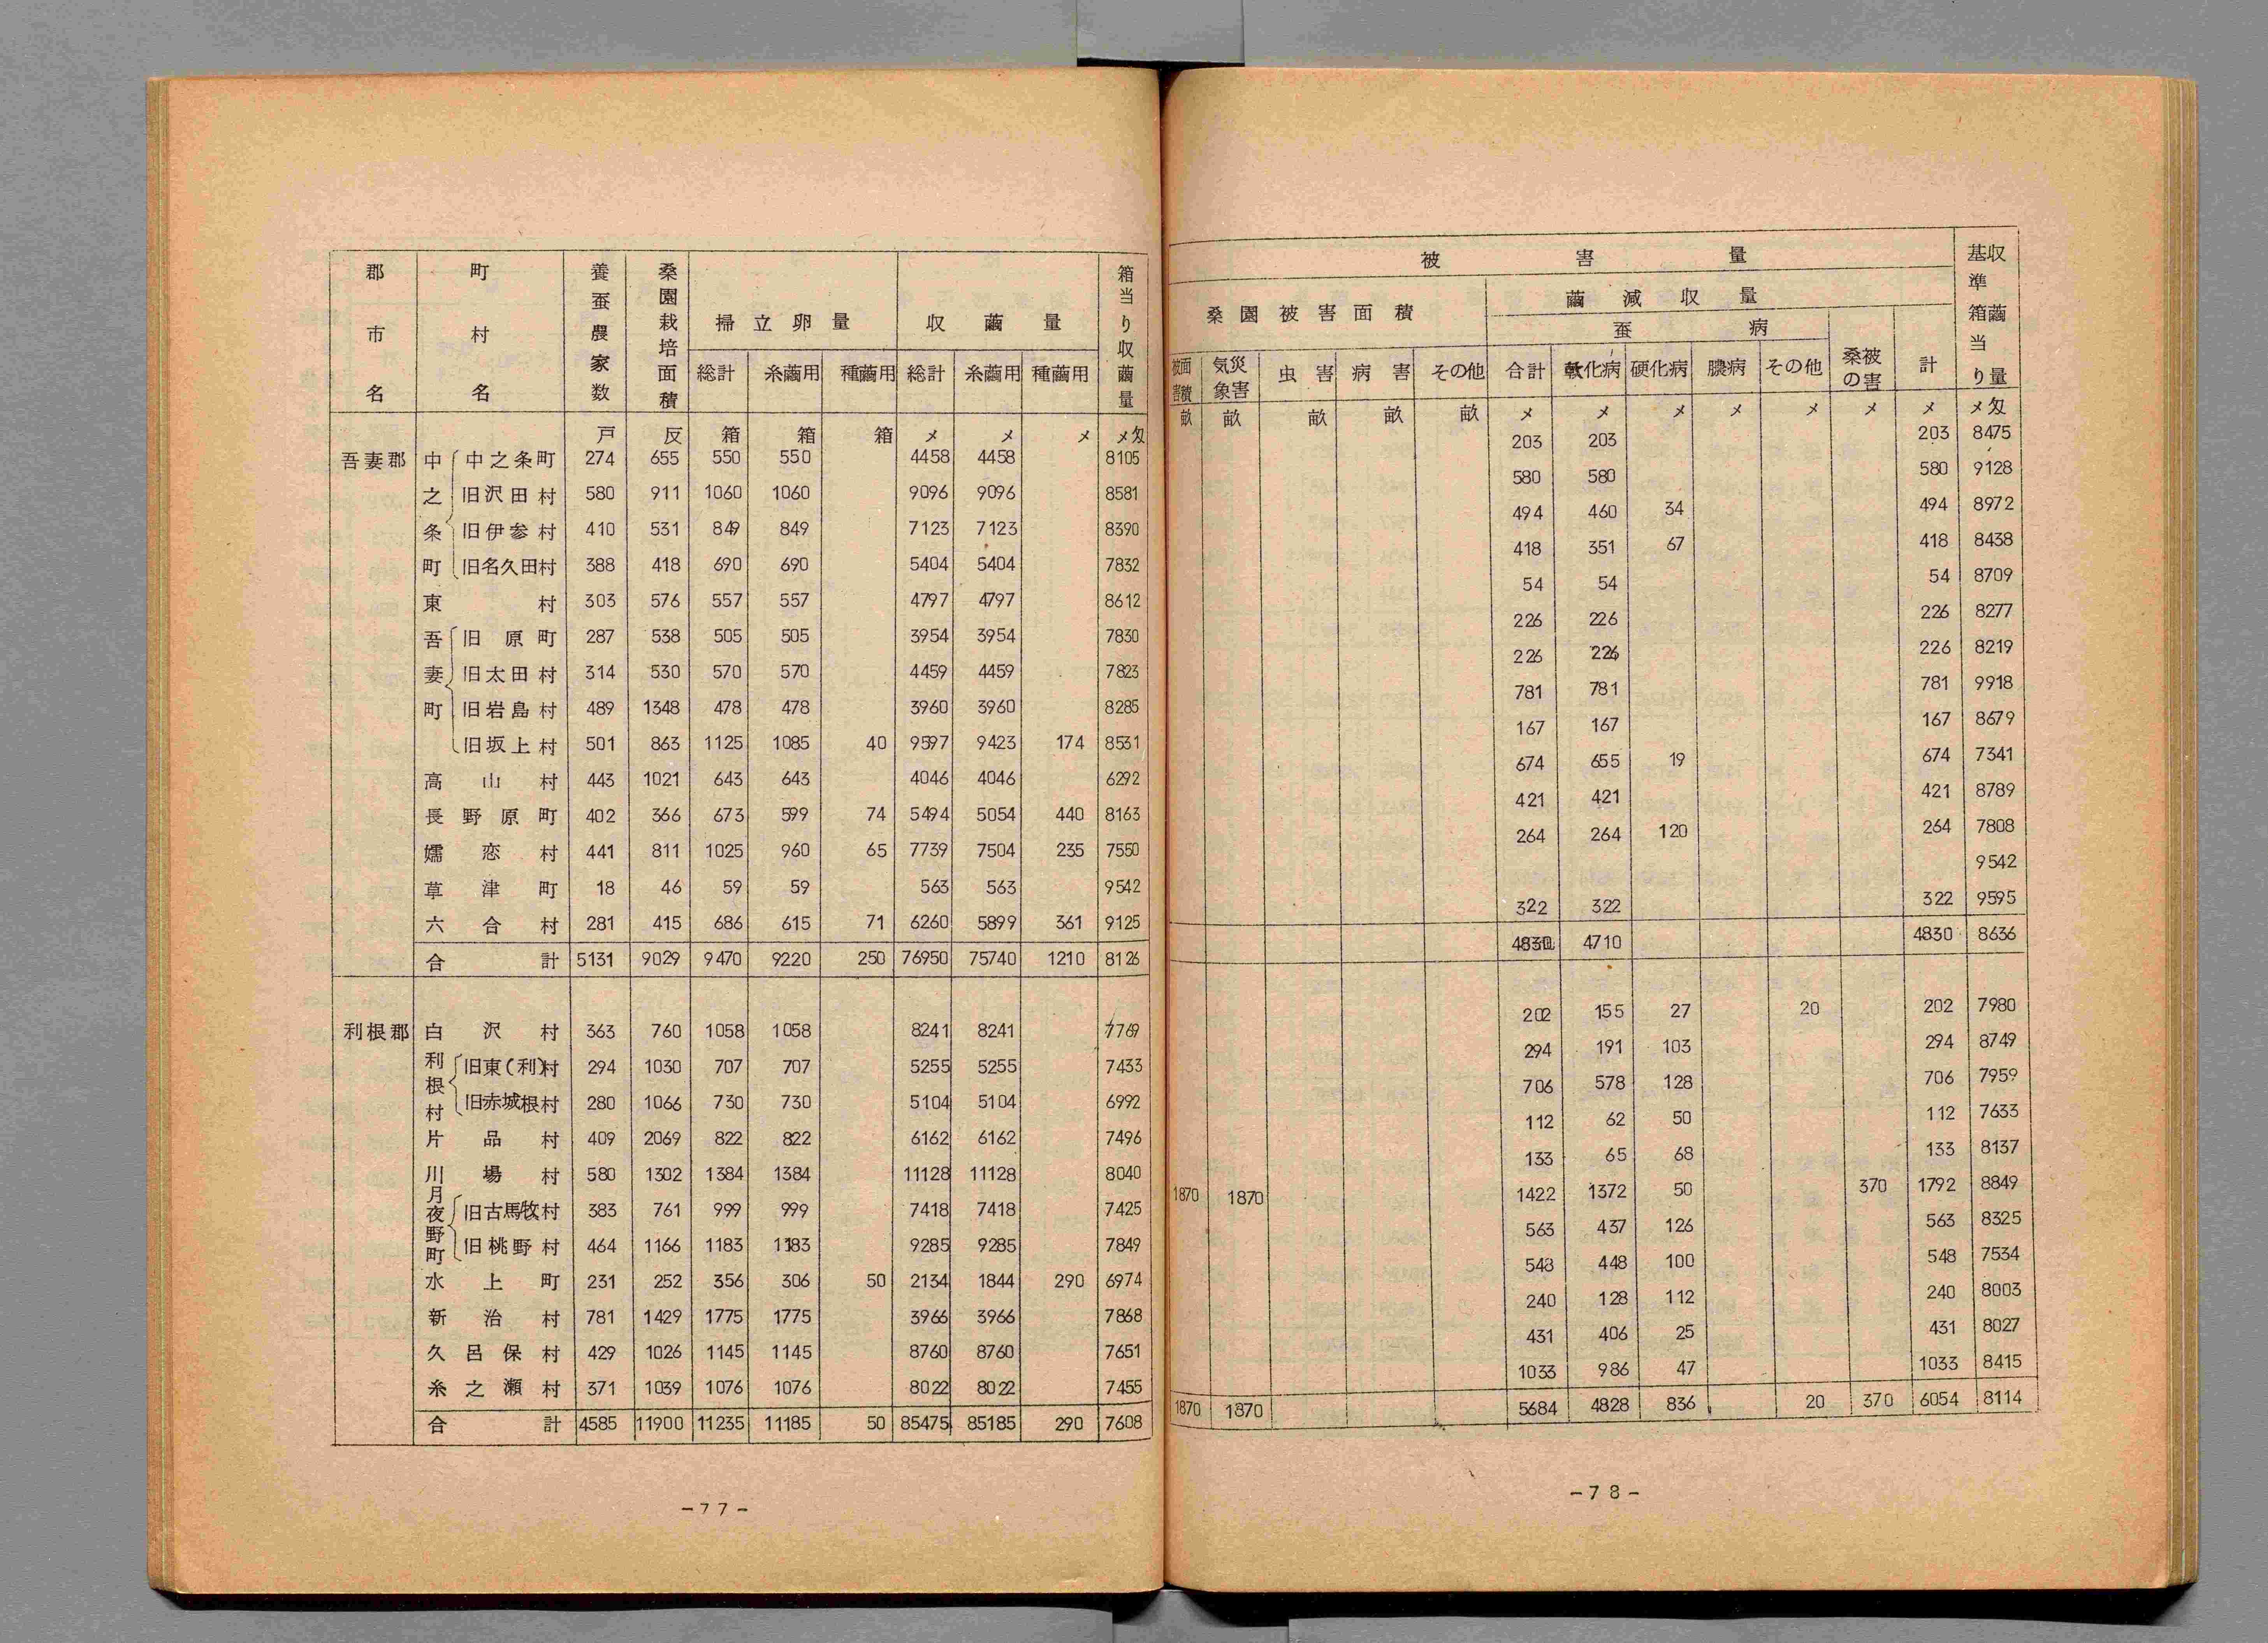 郡市名 町村名 養蚕農家数 桑園栽培面積 掃立卵量 収繭量 箱当り収繭量
総計 糸繭用 種繭用 総計 糸繭用 種繭用
戸 反 箱 箱 箱 メ メ メ メ匁
吾妻郡 中之条町 中之条町 274 655 550 550 4458 4458 8105
旧沢田村 580 911 1060 1060 9096 9096 8581
旧伊参村 410 531 849 849 7123 7123 8390
旧名久田村 388 418 690 690 5404 5404 7832
東村 303 576 557 557 4797 4797 8612
吾妻町 旧原町 287 538 505 505 3954 3954 7830
旧太田村 314 530 570 570 4459 4459 7823
旧岩島村 489 1348 478 478 3960 3960 8285
旧坂上村 501 863 1125 1085 40 9597 9423 174 8531
高山村 443 1021 643 643 4046 4046 6292
長野原町 402 366 673 599 74 5494 5054 440 8163
嬬恋村 441 811 1025 960 65 7739 7504 235 7550
草津町 18 46 59 59 563 563 9542
六合村 281 415 686 615 71 6260 5899 361 9125
合計 5131 9029 9470 9220 250 76950 75740 1210 8126
利根郡 白沢村 363 760 1058 1058 8241 8241 7769
利根村 旧東(利)村 294 1030 707 707 5255 5255 7433
旧赤城根村 280 1066 730 730 5104 5104 6992
片品村 409 2069 822 822 6162 6162 7496
川場村 580 1302 1384 1384 11128 11128 8040
月夜野町 旧古馬牧村 383 761 999 999 7418 7418 7425
旧桃野村 464 1166 1183 1183 9285 9285 7849
水上町 231 252 356 306 50 2134 1844 290 6974
新治村 781 1429 1775 1775 3966 3966 7868
久呂保村 429 1026 1145 1145 8760 8760 7651
糸之瀬村 371 1039 1076 1076 8022 8022 7455
合計 4585 11900 11235 11185 50 85475 85185 290 7608
-77-
被害量 基準箱当り収繭量
桑園被害面積 繭減収量
蚕病 桑の被害 計
被害面積 気象災害 虫害 病害 その他 合計 軟化病 硬化病 膿病 その他
畝 畝 畝 畝 畝 メ メ メ メ メ メ メ メ匁
203 203 203 8475
580 580 580 9128
494 460 34 494 8972
418 351 67 418 8438
54 54 54 8709
226 226 226 8277
226 226 226 8219
781 781 781 9918
167 167 167 8679
674 655 19 674 7341
421 421 421 8789
264 264 120 264 7808
9542
322 322 322 9595
4710 4830 8636
202 155 27 20 202 7980
294 191 103 294 8749
706 578 128 706 7959
112 62 50 112 7633
133 65 68 133 8137
1870 1870 1422 1372 50 370 1792 8849
563 437 126 563 8325
548 448 100 548 7534
240 128 112 240 8003
431 406 25 431 8027
1033 986 47 1033 8415
1870 1870 5684 4828 836 20 370 6054 8114
-78-